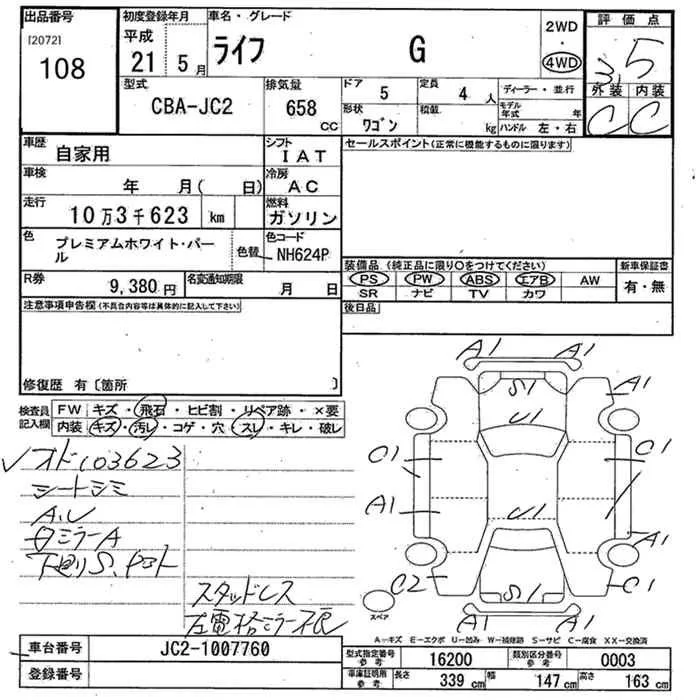 出品番号
[2072]
108
初度登録年月
平成
21 5 月
車名・グレード
ライフ G
2WD
・
4WD
評価点
3.5
外装 内装
C C
型式
CBA-JC2
排気量
658
CC
ドア
5
定員
4 人
形状
ワゴン
積載
kg
ディーラー・並行
モデル
年式 年
ハンドル 左・右
車歴
自家用
シフト
IAT
車検
年 月( 日)
冷房
AC
走行
10万3千623 km
燃料
ガソリン
色
プレミアムホワイト・パール
色替
色コード
NH624P
R券
9,380円
名変通知期限
月 日
セールスポイント(正常に機能するものに限ります)
装備品 (純正品に限り○をつけてください)
PS PW ABS エアB AW
SR ナビ TV カワ
新車保証書
有・無
後日品
注意事項申告欄(不具合内容等は具体的に記入して下さい)
修復歴 有〔箇所 〕
検査員
記入欄
FW キズ・飛石・ヒビ割・リペア跡・×要
内装 キズ・汚レ・コゲ・穴・スレ・キレ・破レ
オド103623
シートシミ
A.U
ミラーA
下廻りS、
スタッドレス
左電格ミラー不良
A1 A1
S1 A1
U1
C1 C1
A1 A1
U1
C2 S1 C1
A1 A1
スペア
A―キズ E―エクボ U―凹み W―補修跡 S―サビ C―腐食 XX―交換済
車台番号
JC2-1007760
登録番号
型式指定番号
参考
16200
類別区分番号
参考
0003
車庫証明用
参考
長さ
339 cm
幅
147 cm
高さ
163 cm